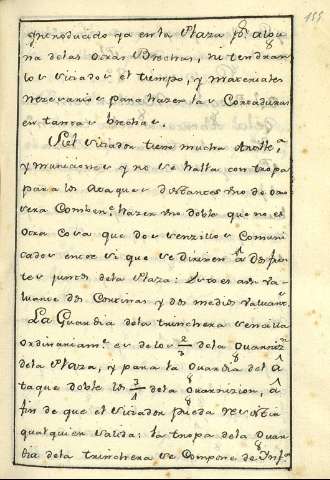 155
introducido ya en la Plaza p.r algu
na delas otras Brechas, ni tendran
los sitiados el tiempo, y materiales
necesarios para hazer las Cortaduras
en tantas brechas.
Si el sitiador tiene mucha Artille.a
y municiones y no se halla con tropa
para los Ataques distantes no de
vera hazer uno doble que no es
otra cosa que dos senzillos Comuni
cados entre si que se dirixen à dos fren
tes juntos dela Plaza: Esto es a dos va
luartes dos Cortinas y dos medios valuart.s
La Guardia dela trinchera sencilla
ordinariam.te es delos 2/3 dela Guarniz.n
dela Plaza, y para la Guardia del A
taque doble los 3/4 dela Guarnizion, à
fin de que el sitiador pueda resistir
qualquier salida: la tropa dela Guar
dia dela trinchera se Compone de Inf.a